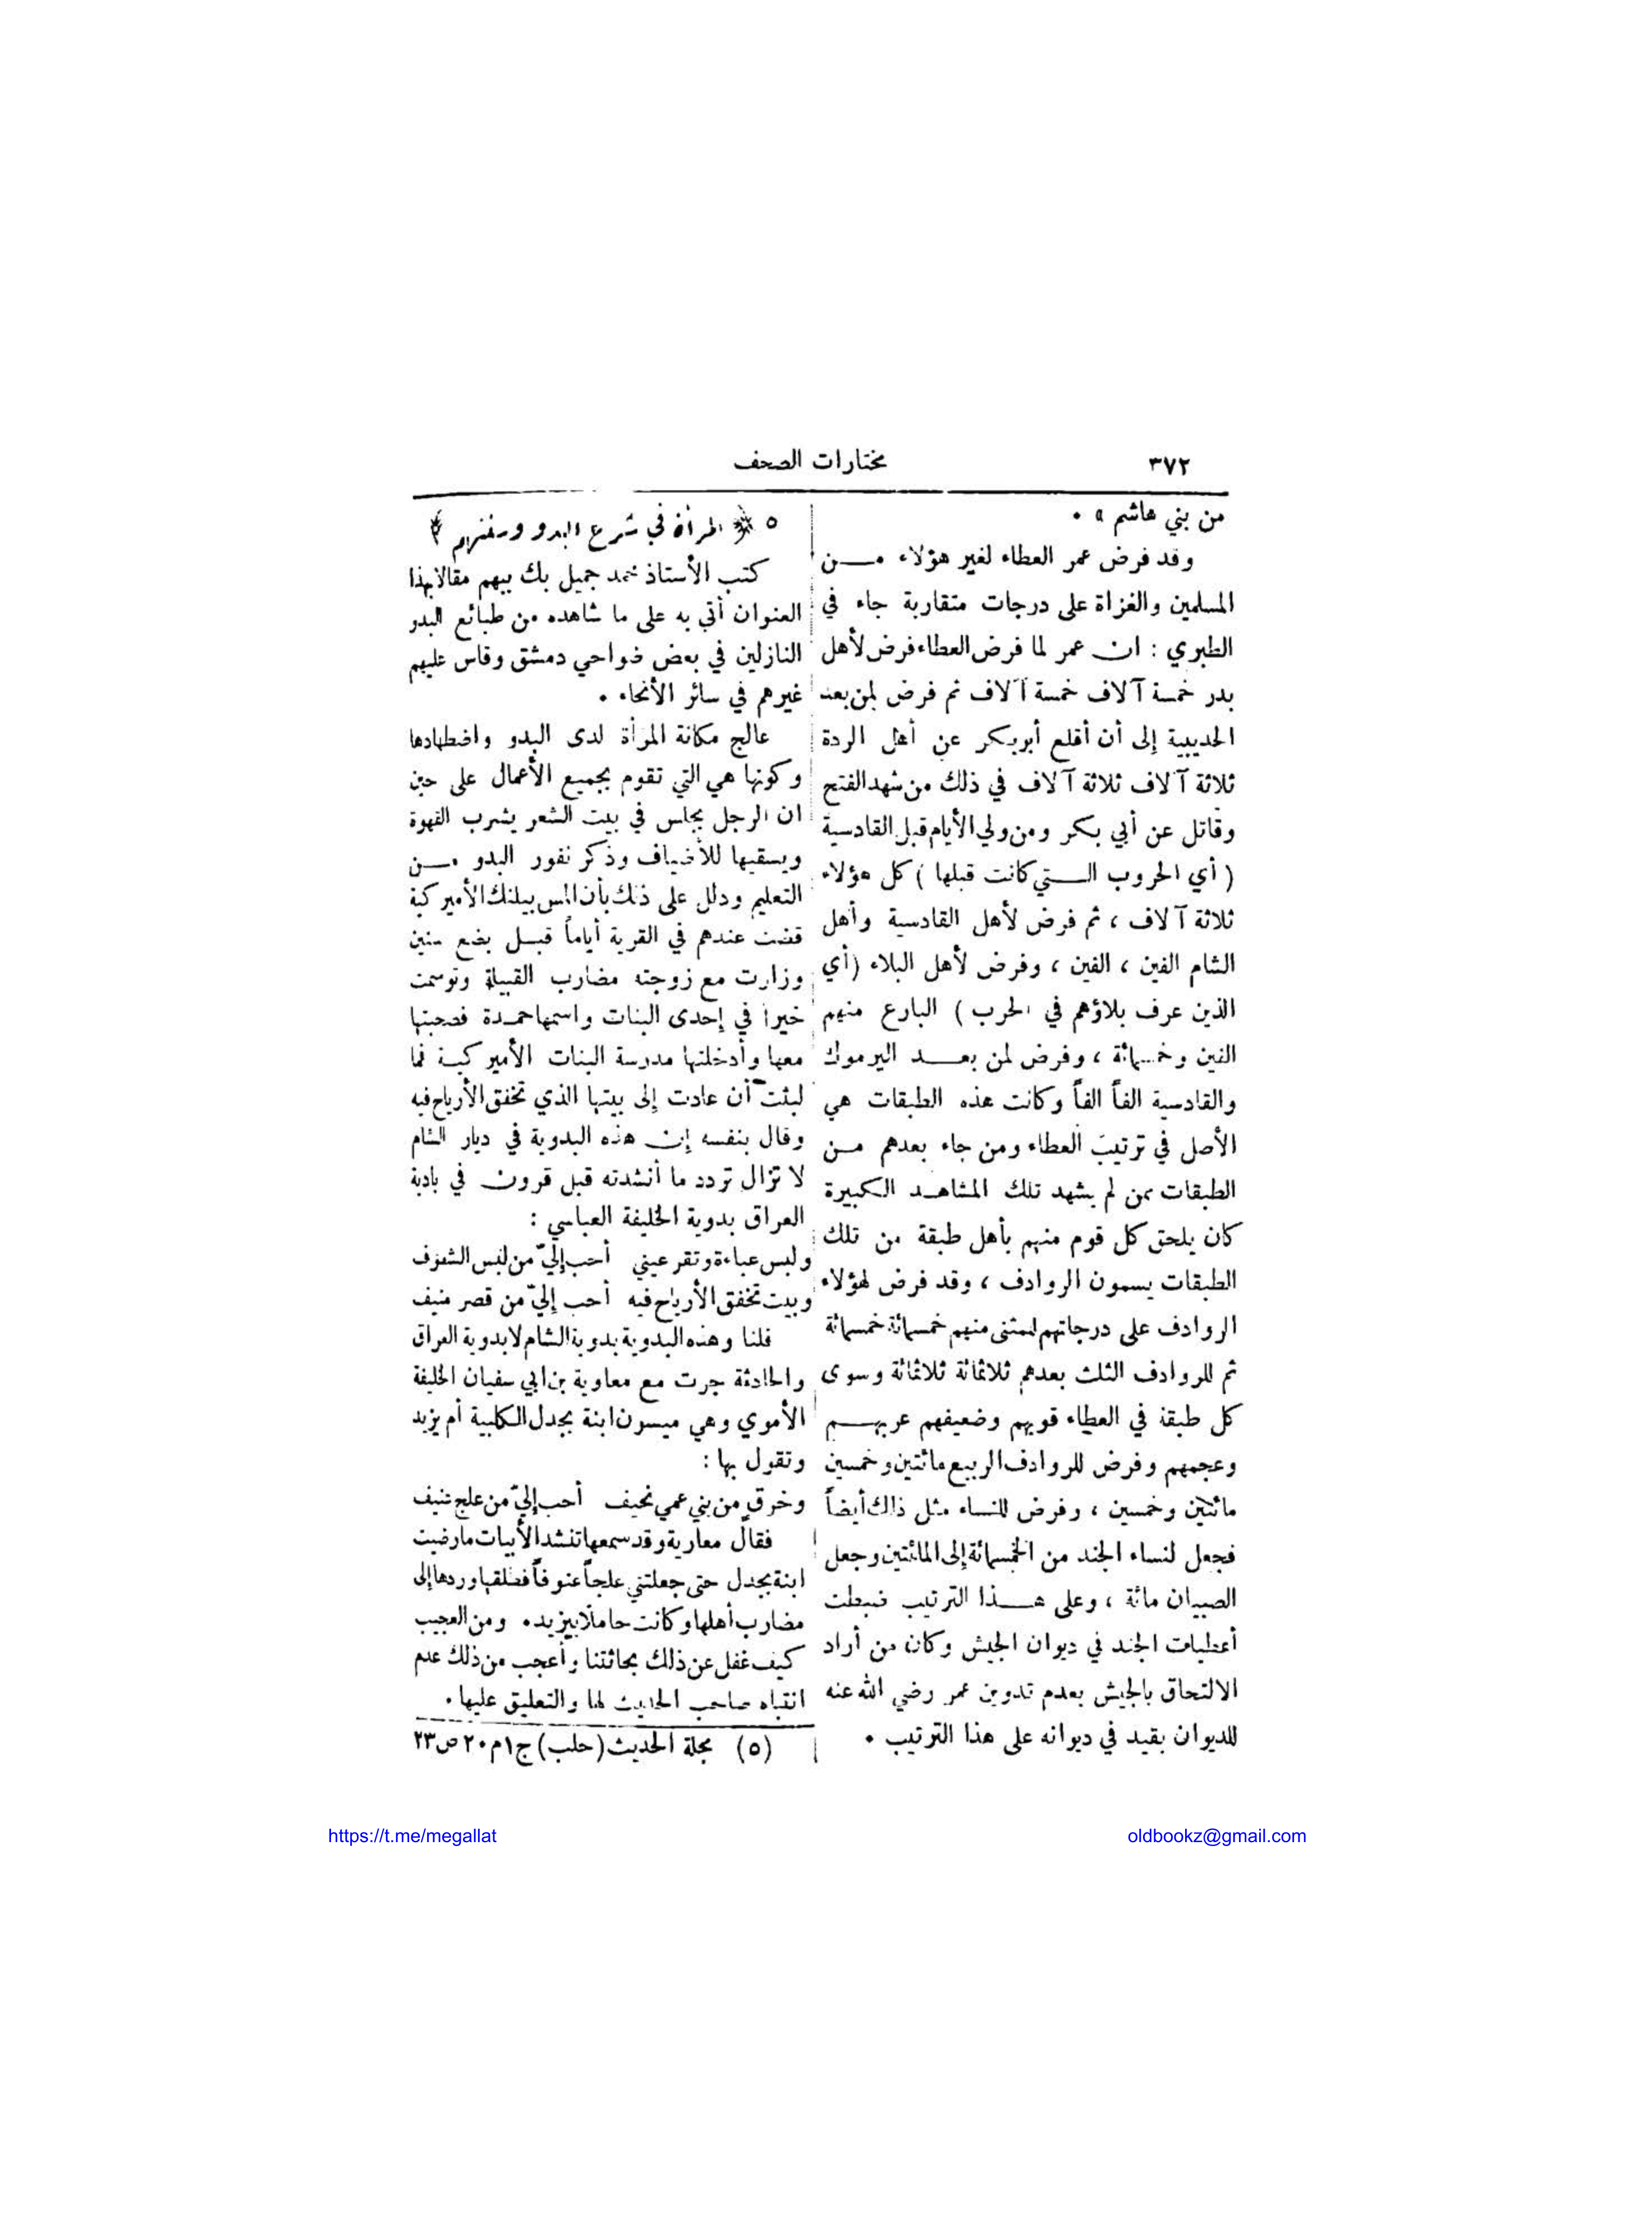 ٣٧٢
مختارات الصحف
من بني هاشم » .
وقد فرض عمر العطاء لغير هؤلاء مـــن
المسلمين والغزاة على درجات متقاربة جاء في
الطبري : ان عمر لما فرض العطاء فرض لأهل
بدر خمسة آلاف خمسة آلاف ثم فرض لمن بعد
الحديبية إلى أن أقلع أبو بكر عن أهل الردة
ثلاثة آلاف ثلاثة آلاف في ذلك من شهد الفتح
وقاتل عن أبي بكر ومن ولي الأيام قبل القادسية
( أي الحروب الـــتي كانت قبلها ) كل هؤلاء
ثلاثة آلاف ، ثم فرض لأهل القادسية وأهل
الشام الفين ، الفين ، وفرض لأهل البلاء (أي
الذين عرف بلاؤهم في الحرب ) البارع منهم
الفين وخمسمائة ، وفرض لمن بعـــد اليرموك
والقادسية الفاً الفاً وكانت هذه الطبقات هي
الأصل في ترتيب العطاء ومن جاء بعدهم مـن
الطبقات ممن لم يشهد تلك المشاهـد الكبيرة
كان يلحق كل قوم منهم بأهل طبقة من تلك
الطبقات يسمون الروادف ، وقد فرض لهؤلاء
الروادف على درجاتهم للمثنى منهم خمسمائة خمسمائة
ثم للروادف الثلث بعدهم ثلاثمائة ثلاثمائة وسوى
كل طبقة في العطاء قويهم وضعيفهم عربهـــم
وعجمهم وفرض للروادف الربيع مائتين وخمسين
مائتين وخمسين ، وفرض للنساء مثل ذلك أيضاً
فجعل لنساء الجند من الخمسمائة إلى المائتين وجعل
الصبيان مائة ، وعلى هـــذا الترتيب ضبطت
أعطيات الجند في ديوان الجيش وكان من أراد
الالتحاق بالجيش بعدم تدوين عمر رضي الله عنه
للديوان يقيد في ديوانه على هذا الترتيب .
٥ ﴿ المرأة في شرع البدو وسننهم ﴾
كتب الأستاذ محمد جميل بك بيهم مقالا بهذا
العنوان أتي به على ما شاهده من طبائع البدو
النازلين في بعض ضواحي دمشق وقاس عليهم
غيرهم في سائر الأنحاء .
عالج مكانة المرأة لدى البدو واضطهادها
وكونها هي التي تقوم بجميع الأعمال على حين
ان الرجل يجلس في بيت الشعر يشرب القهوة
ويسقيها للأضياف وذكر نفور البدو مـــن
التعليم ودلل على ذلك بأن المس بيلنك الأميركية
قضت عندهم في القرية أياماً قبـل بضع سنين
وزارت مع زوجته مضارب القبيلة وتوسمت
خيراً في إحدى البنات واسمها حمـدة فصحبتها
معها وأدخلتها مدرسة البنات الأميركيـة فما
لبثت أن عادت إلى بيتها الذي تخفق الأرياح فيه
وقال بنفسه إن هذه البدوية في ديار الشام
لا تزال تردد ما أنشدته قبل قرون في بادية
العراق بدوية الخليفة العباسي :
ولبس عباءة وتقر عيني أحب إليّ من لبس الشفوف
وبيت تخفق الأرياح فيه أحب إليّ من قصر منيف
قلنا وهذه البدوية بدوية الشام لا بدوية العراق
والحادثة جرت مع معاوية بن ابي سفيان الخليفة
الأموي وهي ميسون ابنة بجدل الكلبية أم يزيد
وتقول بها :
وخرق من بني عمي نحيف أحب إليّ من علج عنيف
فقال معاوية وقد سمعها تنشد الأبيات ما رضيت
ابنة بجدل حتى جعلتني علجاً عنوفاً فطلقها وردها إلى
مضارب أهلها وكانت حاملاً بيزيد . ومن العجيب
كيف غفل عن ذلك بحاثتنا وأعجب من ذلك عدم
انتباه صاحب الحديث لها والتعليق عليها .
(٥) مجلة الحديث (حلب) ج١ م٢٠ ص٢٣
https://t.me/megallat
oldbookz@gmail.com